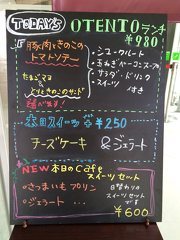 TODAY'S
OTENTOランチ
¥980
豚肉ときのこの
トマトソテー
・シュークルート
・玉ねぎベーコンスープ
・サラダ・ドリンク
・スイーツ 付き
たまごママ
とりときのこのサンド
選べます!
本日スイーツ ¥250
チーズケーキ
&ジェラート
NEW 本日のCafe
スイーツセット
・さつまいもプリン
・ジェラート
日替わりの
スイーツセット
です
¥600